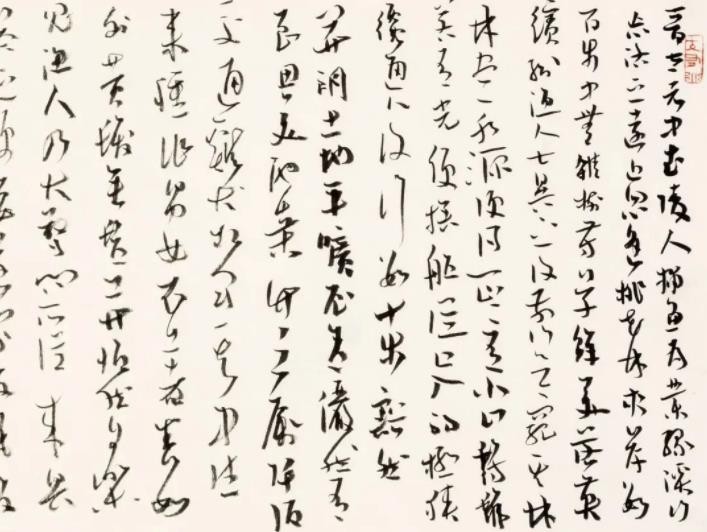 晉太元中武陵人捕魚為業緣溪行
忘路之遠近忽逢桃花林夾岸數
百步中無雜樹芳草鮮美落英
繽紛漁人甚異之復前行欲窮其林
林盡水源便得一山山有小口髣髴
若有光便捨船從口入初極狹
纔通人復行數十步豁然
開朗土地平曠屋舍儼然有
良田美池桑竹之屬阡陌
交通雞犬相聞其中往
來種作男女衣著悉如
外人黃髮垂髫並怡然自樂
見漁人乃大驚問所從來具